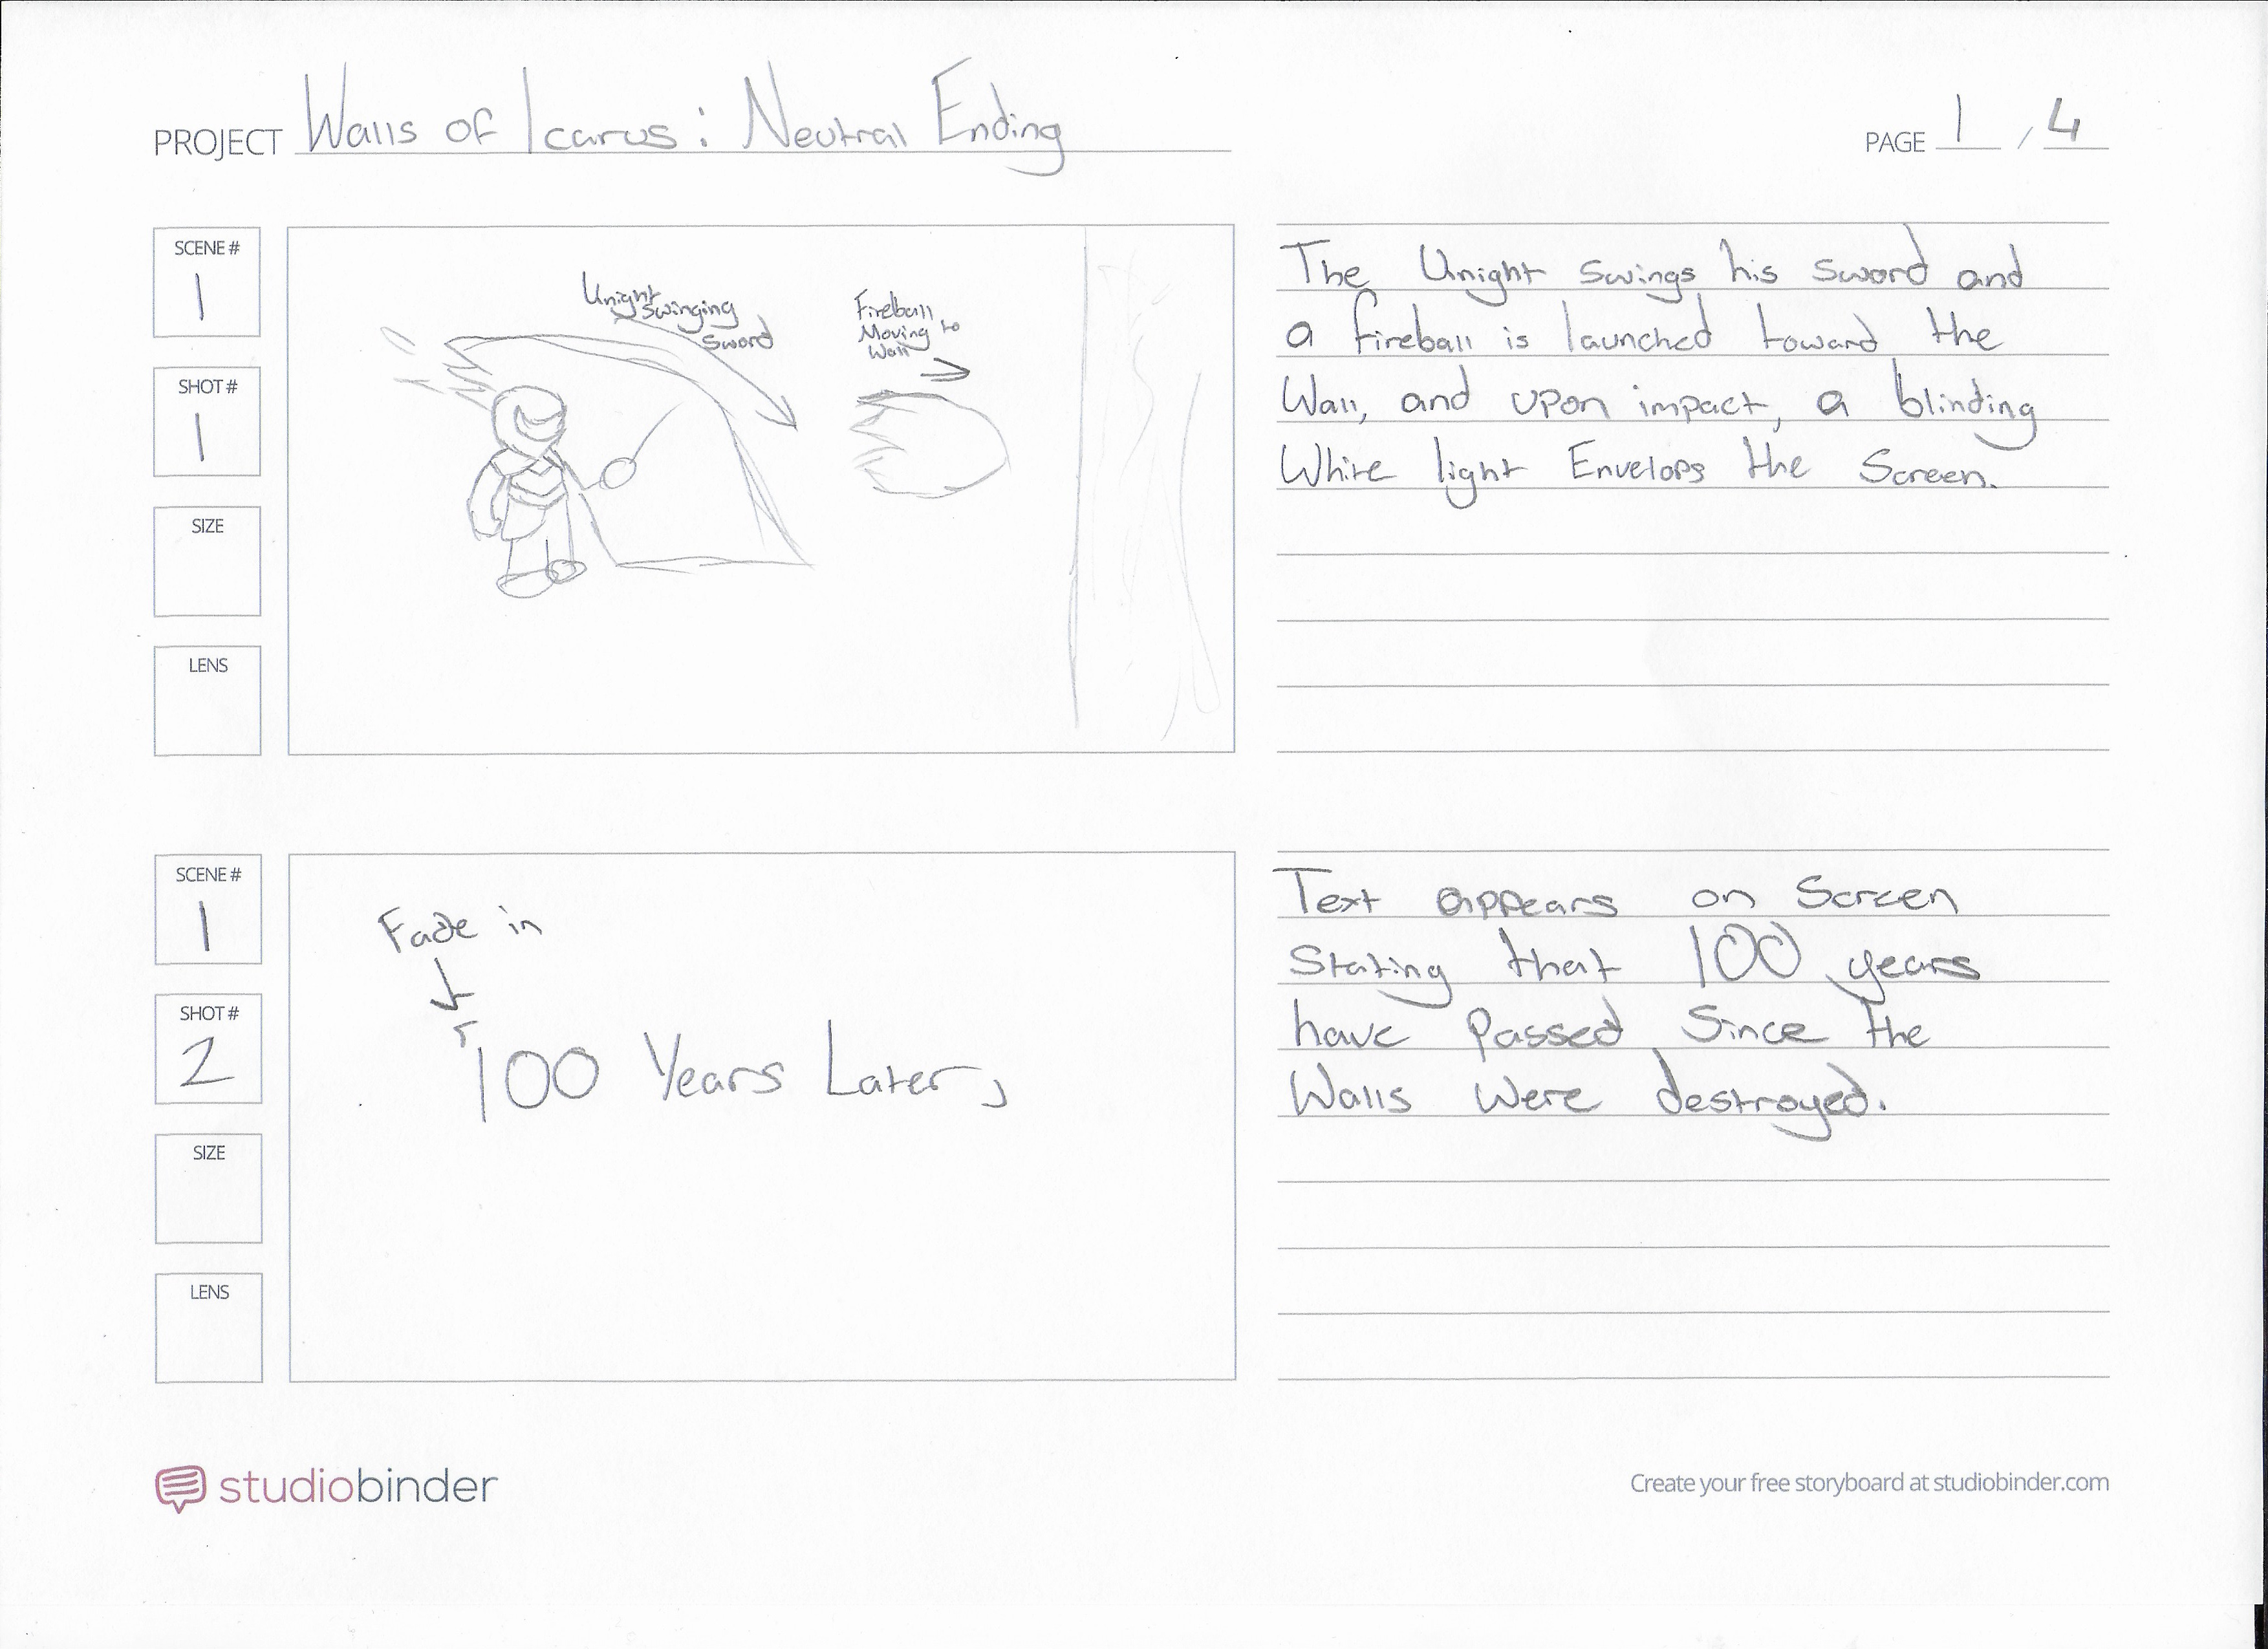 PROJECT Walls of Icarus: Neutral Ending
PAGE 1 / 4
SCENE #
1
SHOT #
1
SIZE
LENS
Unight
Swinging
Sword
Fireball
Moving to
Wall
The Unight swings his sword and
a fireball is launched toward the
Wall, and upon impact, a blinding
White light Envelops the Screen.
SCENE #
1
SHOT #
2
SIZE
LENS
Fade in
100 Years Later,
Text appears on Screen
Stating that 100 years
have Passed Since the
Walls Were destroyed.
studiobinder
Create your free storyboard at studiobinder.com